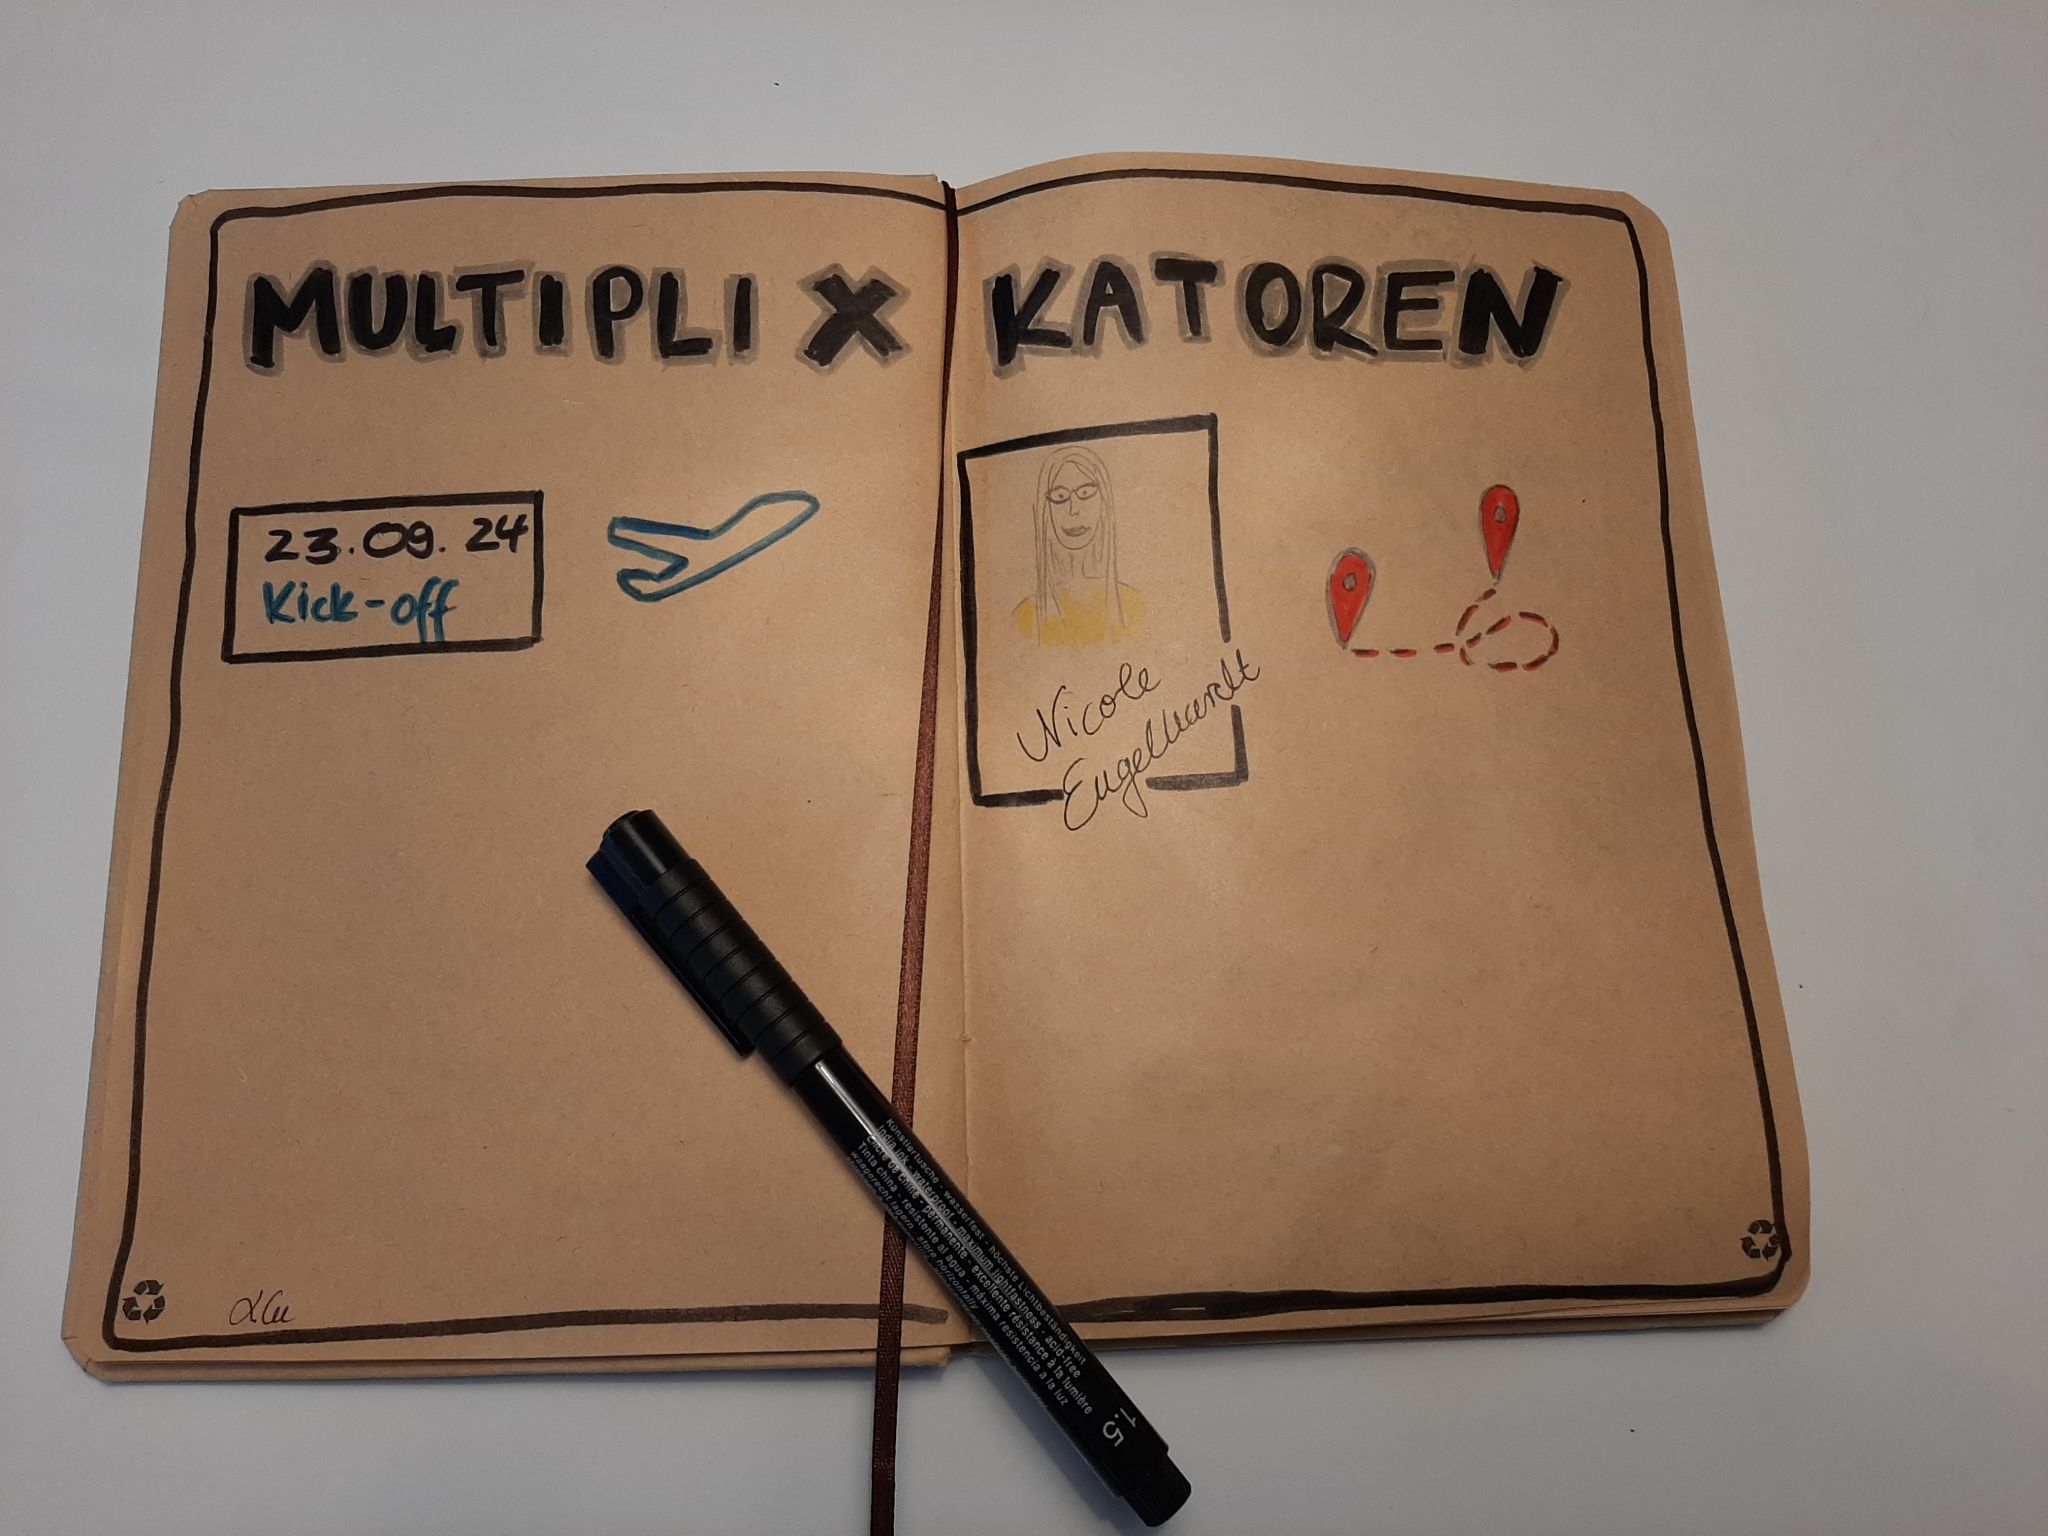 MULTIPLI X KATOREN
23.09.24
Kick-off
Nicole
Engelhardt
Künstlertusche - wasserfest - höchste Lichtbeständigkeit
India ink - waterproof - maximum lightfastness - acid-free
Encre de chine - permanente - excellente résistance à la lumière
Tinta china - resistente al agua - máxima resistencia a la luz
waagerecht lagern - store horizontally
1.5